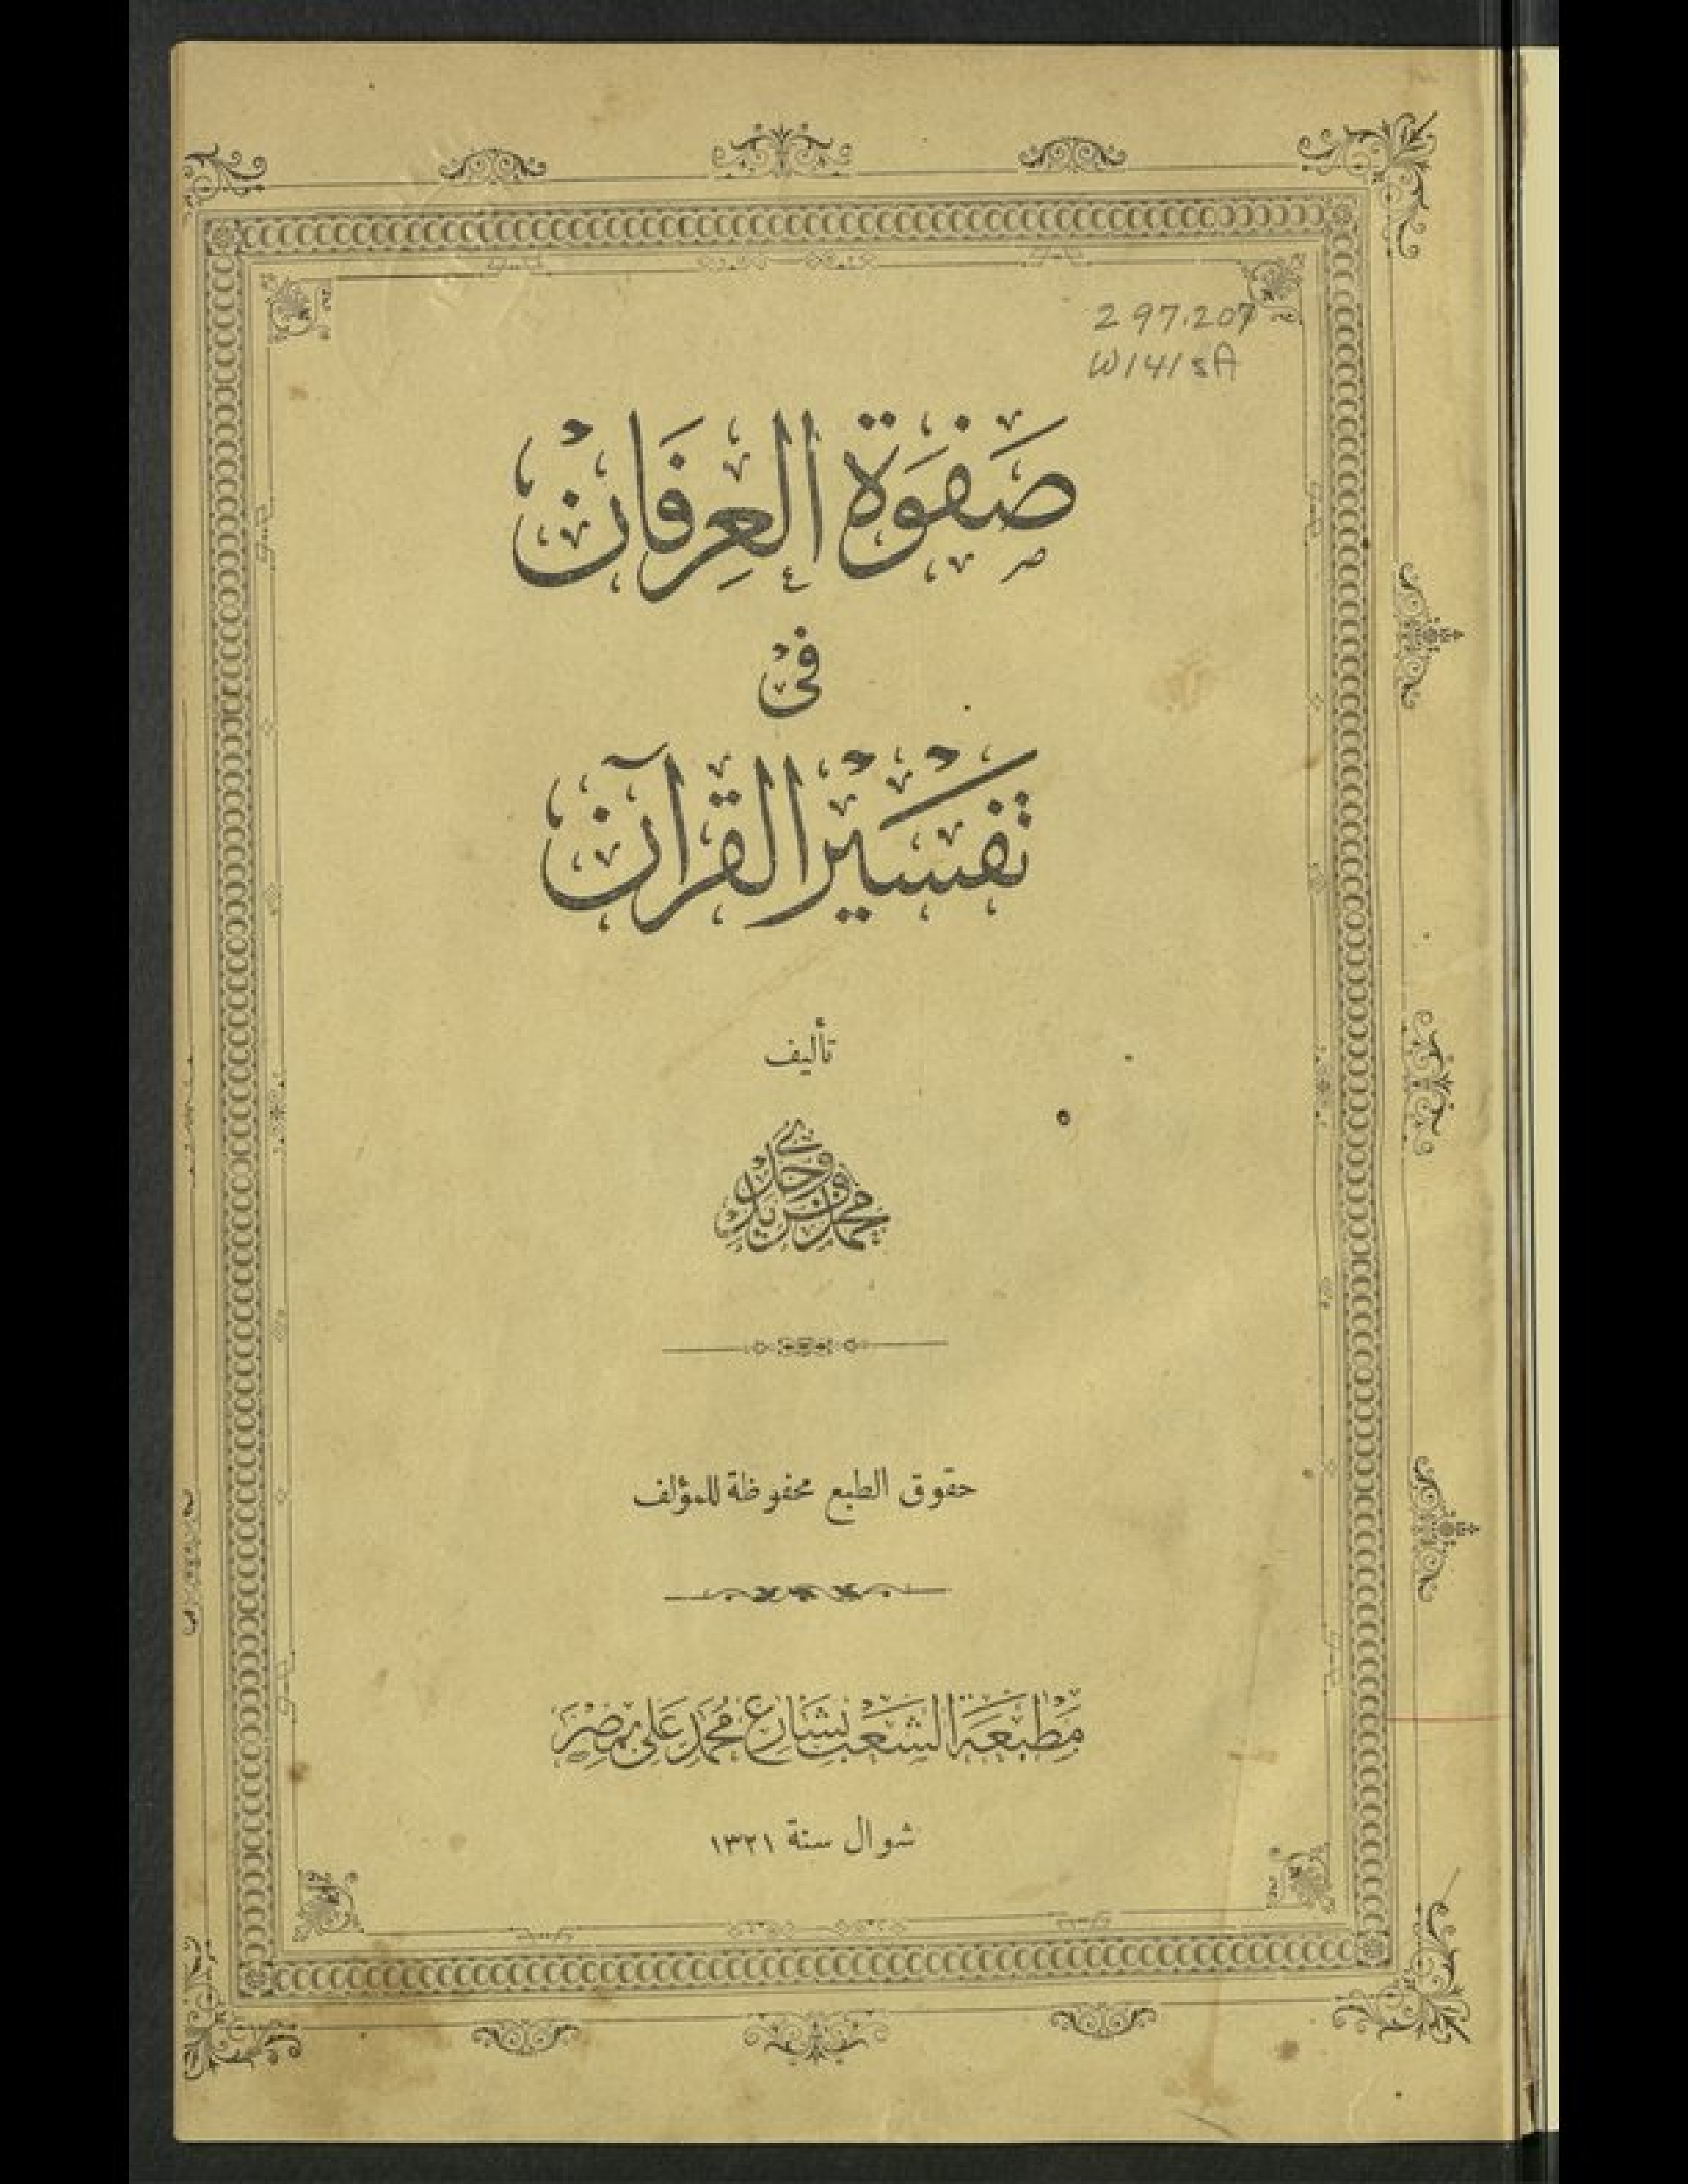 297.207
W141sA
صَفوَة العِرفَان
فى
تفسير القرآن
تأليف
محمد فريد وجدي
حقوق الطبع محفوظة للمؤلف
مَطبَعَة الشَعب بشَارع مُحَمَد عَلى بمِصْر
شوال سنة ١٣٢١